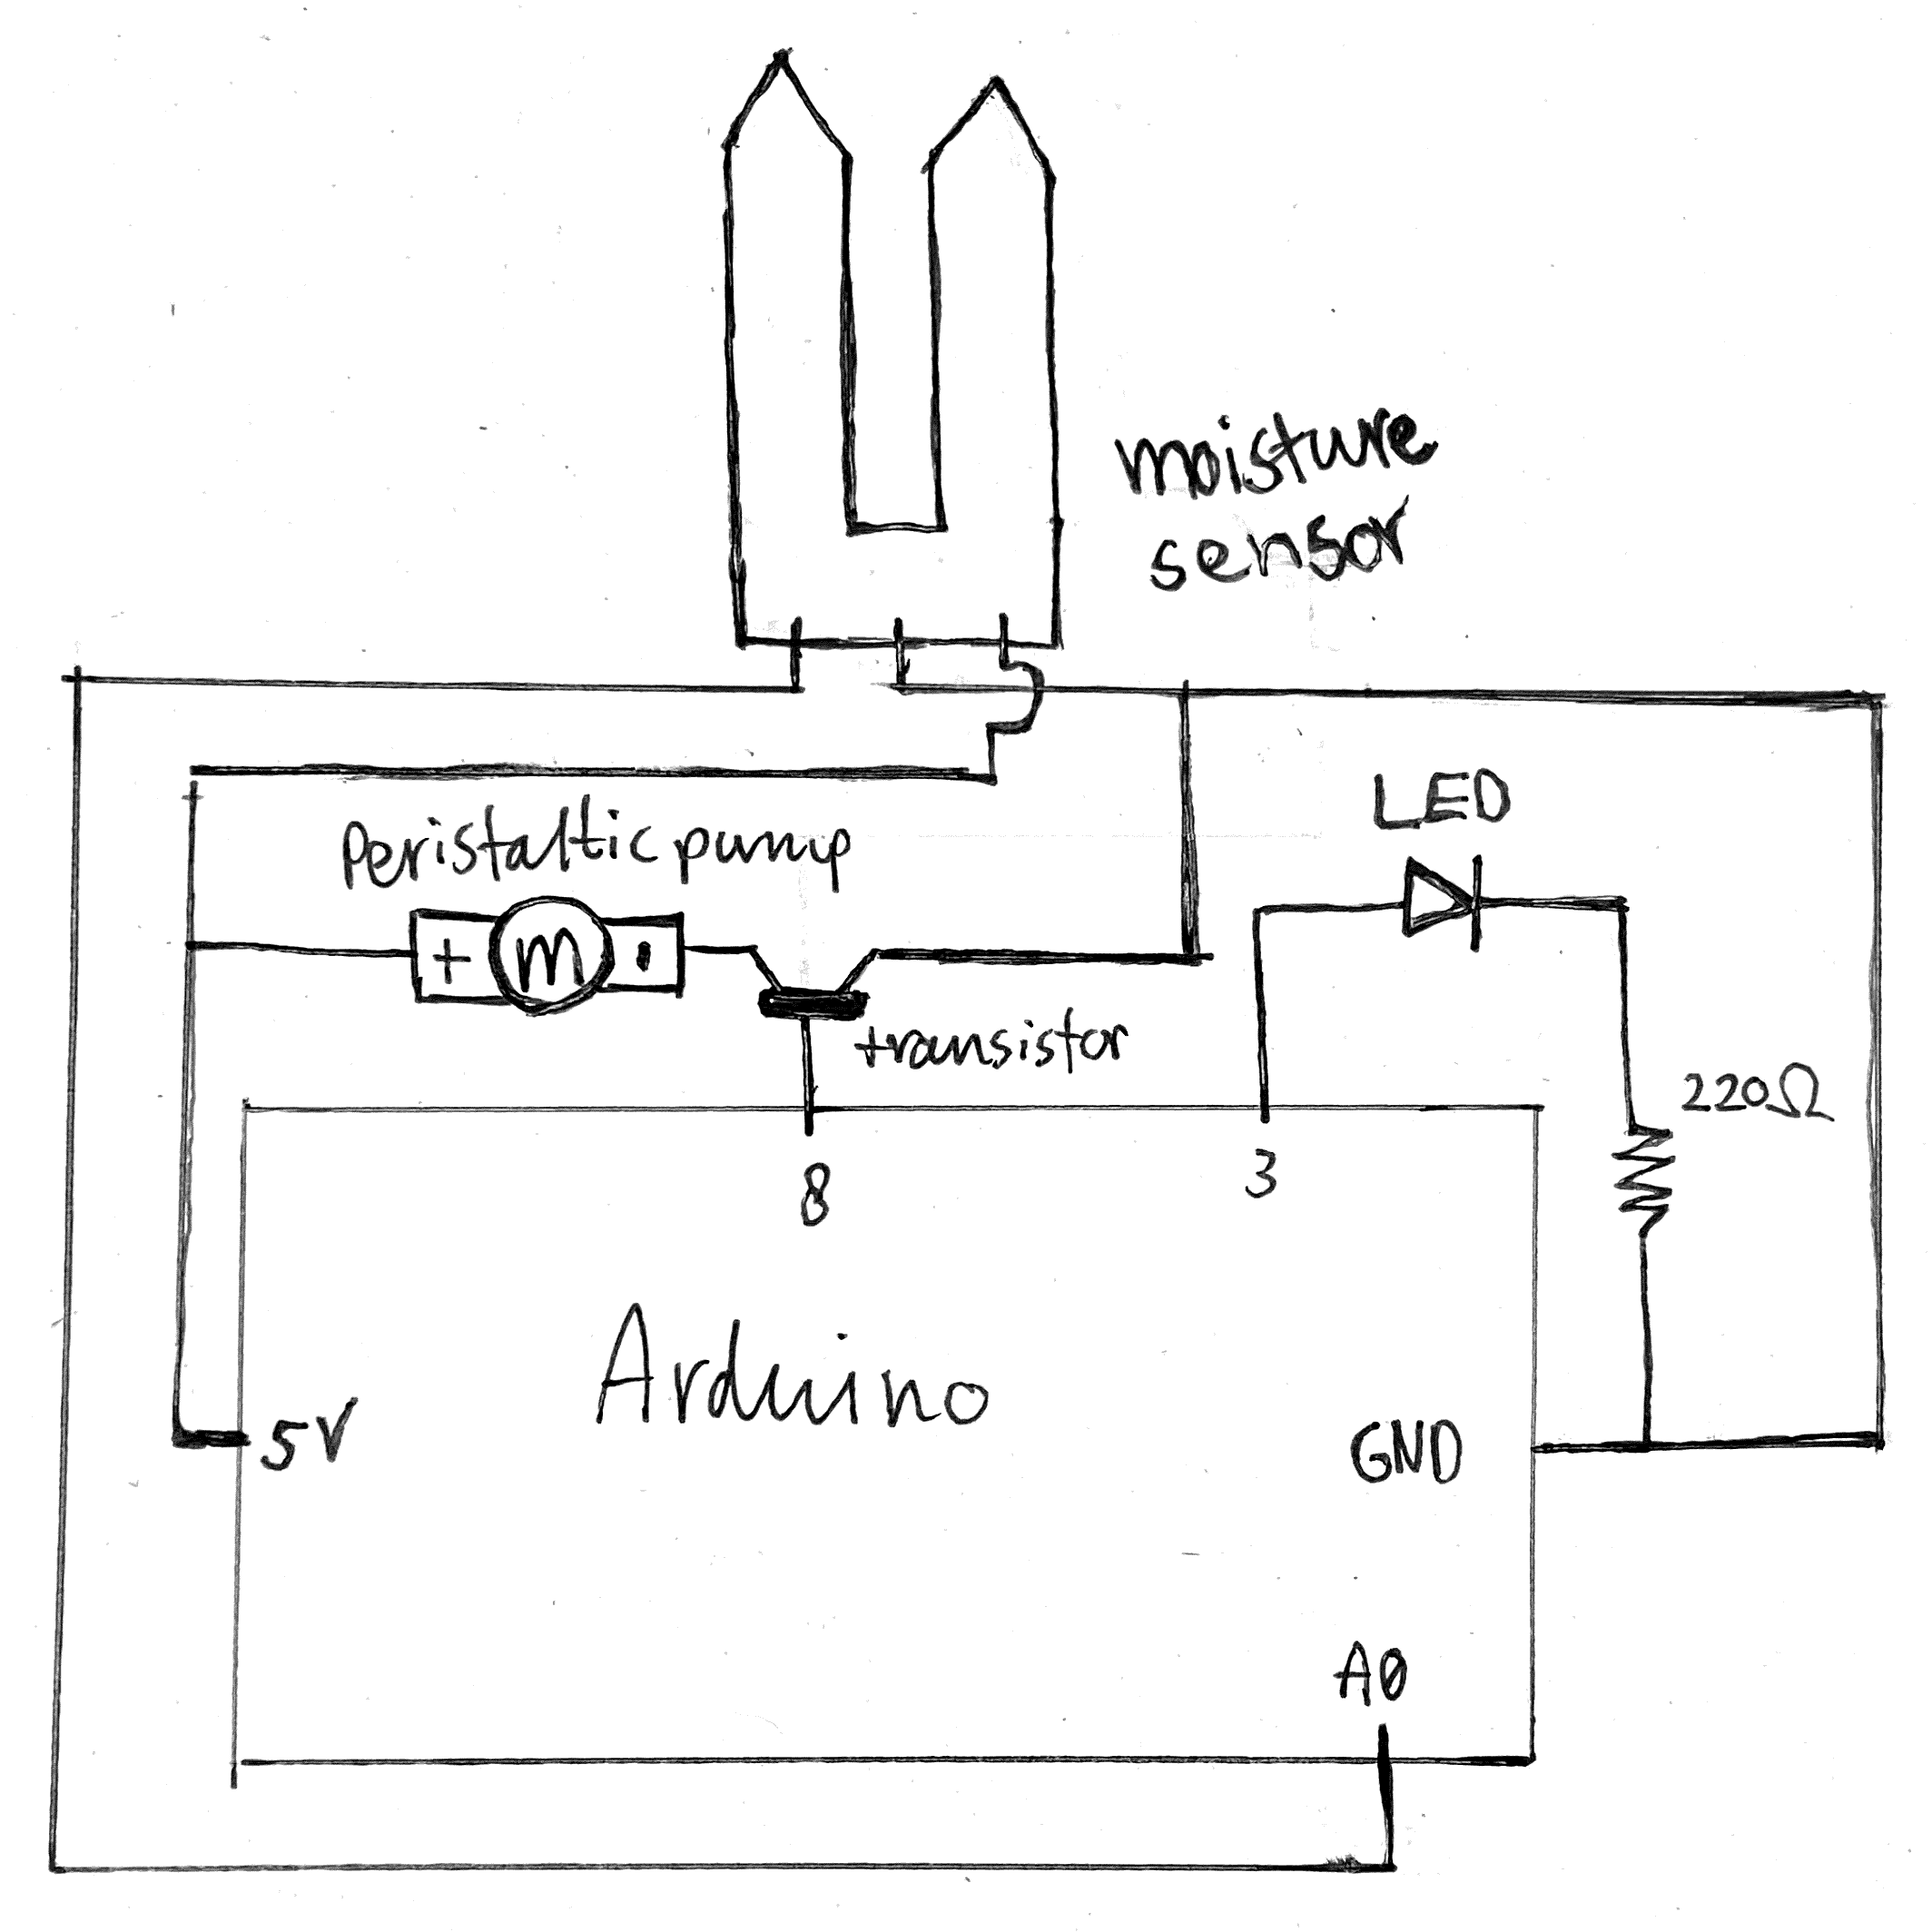 moisture
sensor
LED
Peristaltic pump
+ M -
transistor
220Ω
8
3
Arduino
5V
GND
A0